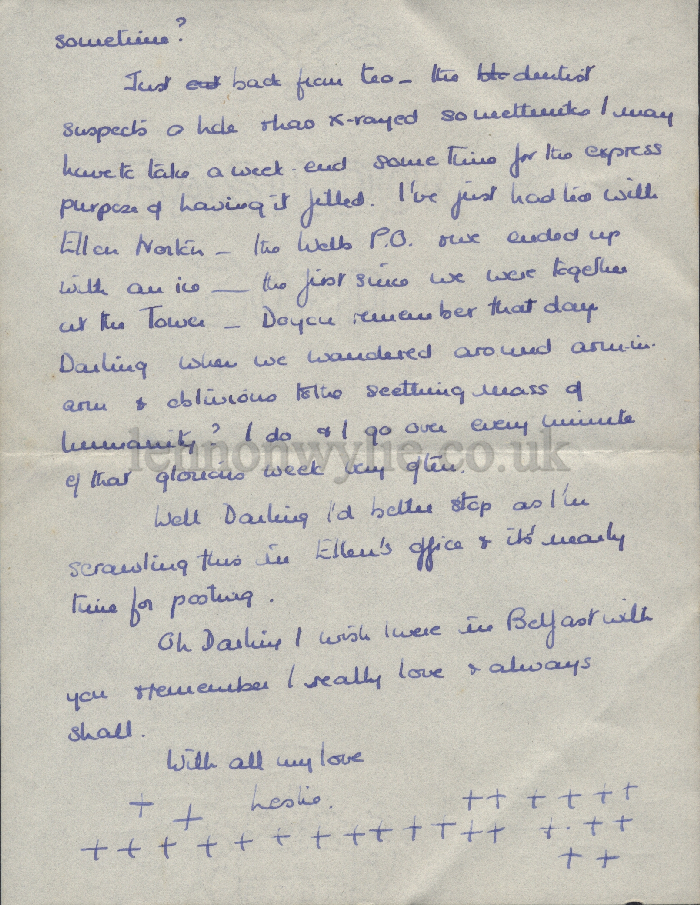 sometime?
Just out back from tea - the dentist
suspects a hole & has x-rayed so methinks I may
have to take a week-end some time for the express
purpose of having it filled. I've just had tea with
Ellen Norton - the Wells P.O. & we ended up
with an ice — the first since we were together
at the Tower - Do you remember that day
Darling when we wandered around arm-in-
arm & oblivious to the seething mass of
humanity? I do & I go over every minute
of that glorious week very often.
lennonwylie.co.uk
Well Darling I'd better stop as I'm
scrawling this in Ellen's office & it's nearly
time for posting.
Oh Darling I wish I were in Belfast with
you & remember I really love & always
shall.
With all my love
Leslie.
+ + ++ + + + +
+ + + + + + + + + + + ++ + . + +
+ +